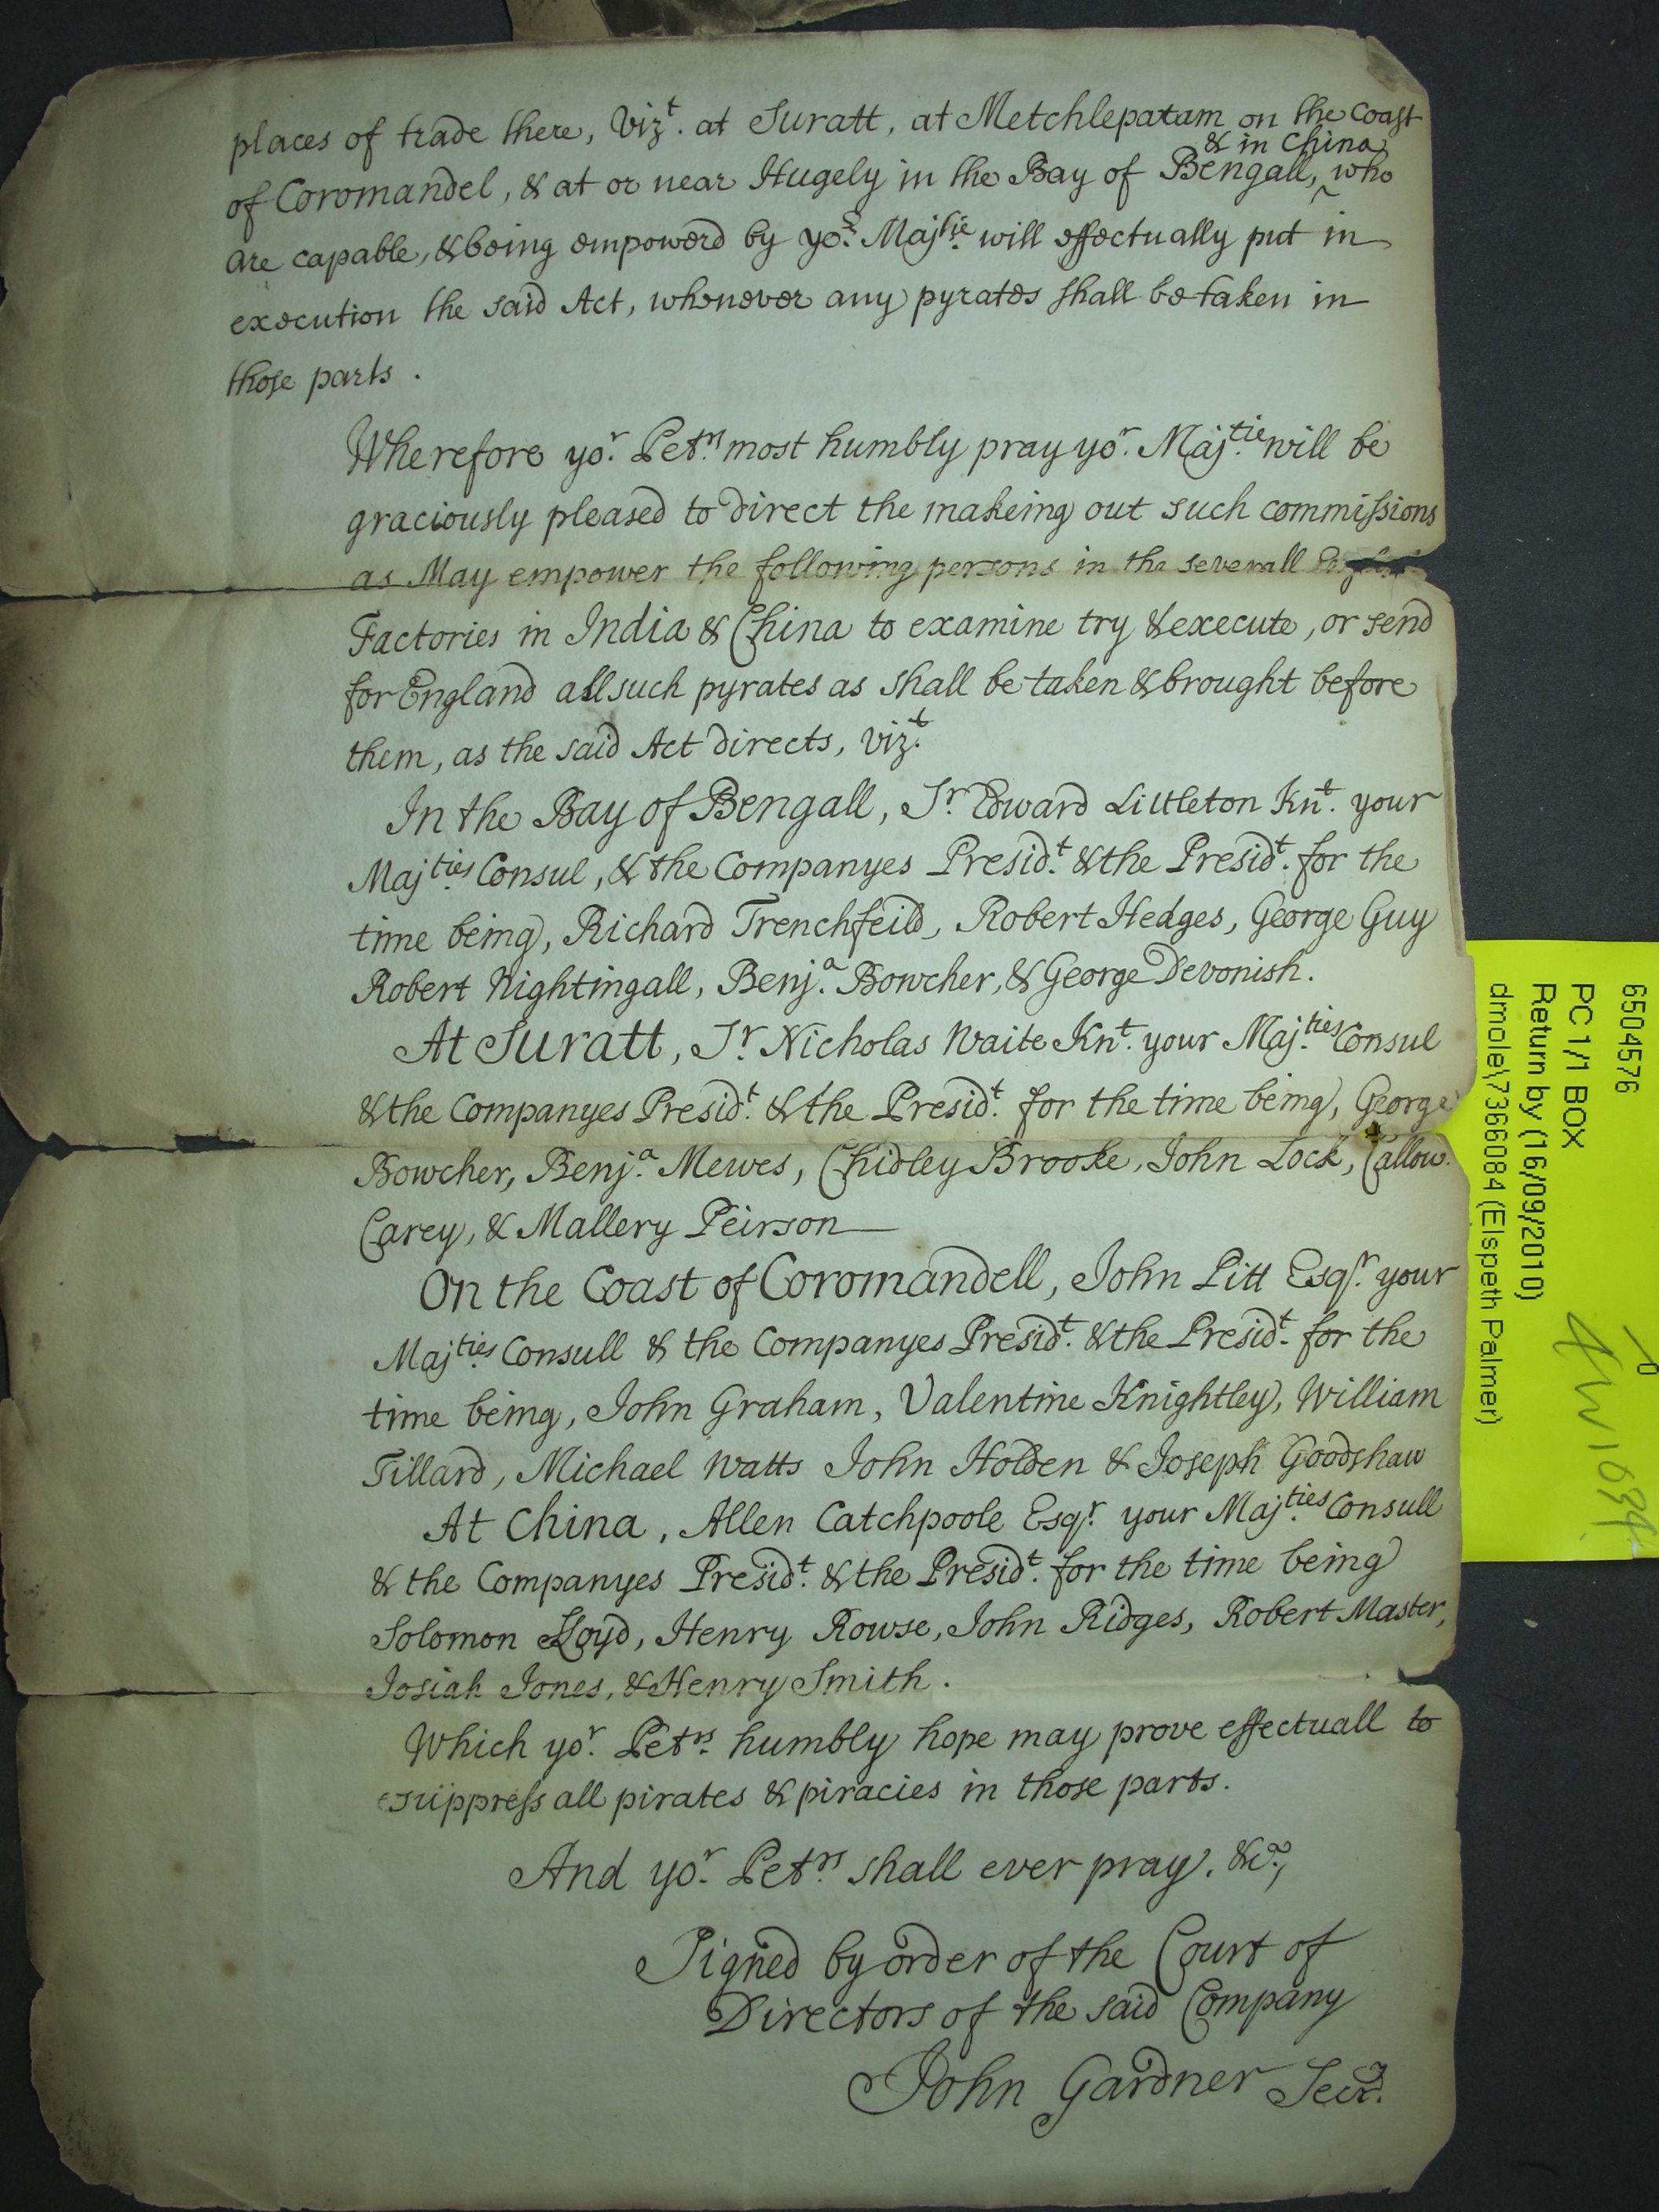 places of trade there, Vizt. at Suratt, at Metchlepatam on the Coast
& in China
of Coromandel, & at or near Hugely in the Bay of Bengall, who
are capable, & being empowerd by yor. Majtie. will effectually put in
execution the said Act, whenever any pyrates shall be taken in
those parts.
Wherefore yor. Petrs. most humbly pray yor. Majtie. will be
graciously pleased to direct the makeing out such commissions
as May empower the following persons in the severall
Factories in India & China to examine try & execute, or send
for England all such pyrates as shall be taken & brought before
them, as the said Act directs, Vizt.
In the Bay of Bengall, Sr. Edward Littleton Knt. your
Majties. Consul, & the Companyes Presidt. & the Presidt. for the
time being, Richard Trenchfeild, Robert Hedges, George Guy
Robert Nightingall, Benja. Bowcher, & George Devonish.
At Suratt, Sr. Nicholas Waite Knt. your Majties. Consul
& the Companyes Presidt. & the Presidt. for the time being, George
Bowcher, Benja. Mewes, Chidley Brooke, John Lock, Callow.
Carey, & Mallery Peirson
On the Coast of Coromandell, John Pitt Esqr. your
Majties. Consull & the Companyes Presidt. & the Presidt. for the
time being, John Graham, Valentine Knightley, William
Tillard, Michael Watts John Holden & Joseph Goodshaw
At China, Allen Catchpoole Esqr. your Majties. Consull
& the Companyes Presidt. & the Presidt. for the time being
Solomon Lloyd, Henry Rowse, John Ridges, Robert Master,
Josiah Jones, & Henry Smith.
Which yor. Petrs. humbly hope may prove effectuall to
suppress all pirates & piracies in those parts.
And yor. Petrs. shall ever pray. &c.,
Signed by order of the Court of
Directors of the said Company
John Gardner Secr.
6504576
PC 1/1 BOX
Return by (16/09/2010)
dmole\7366084 (Elspeth Palmer)